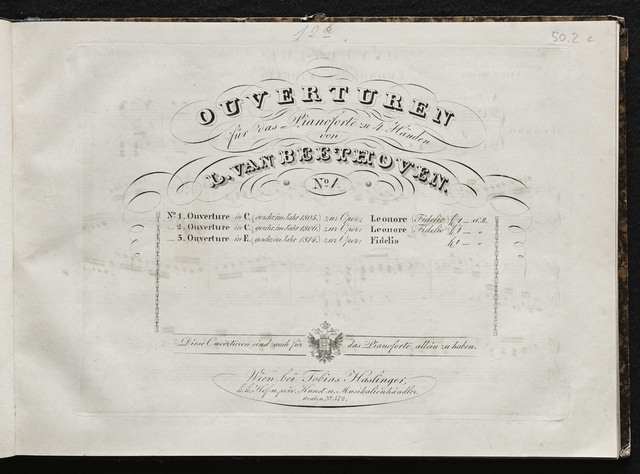 12
50.2 c
OUVERTUREN
für das Pianoforte zu 4 Händen
von
L. VAN BEETHOVEN.
No. 1.
No 1. Ouverture in C, (gesch. im Jahr 1805.) zur Oper: Leonore (Fidelio) f 1 _ C.M.
_ 2. Ouverture in C, (gesch. im Jahr 1806.) zur Oper: Leonore (Fidelio) f 1 _ "
_ 3. Ouverture in E, (gesch. im Jahr 1814.) zur Oper: Fidelio f 1 _ "
Diese Ouverturen sind auch für das Pianoforte allein zu haben.
Wien bei Tobias Haslinger,
k.k. Hof- u. priv. Kunst- u. Musikalienhändler.
Graben No. 572.